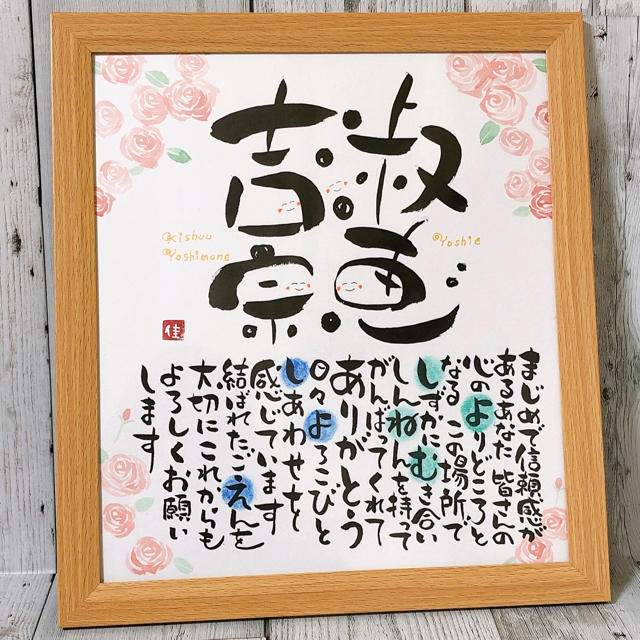 叔恵
吉宗
@Yoshie
@Kishuu
@Yoshimone
佳
まじめで信頼感が
あるあなた 皆さんの
心のよりどころと
なる この場所で
しずかにむき合い
しんねんを持って
がんばってくれて
ありがとう
日々よろこびと
しあわせを
感じています
結ばれたごえんを
大切にこれからも
よろしくお願い
します